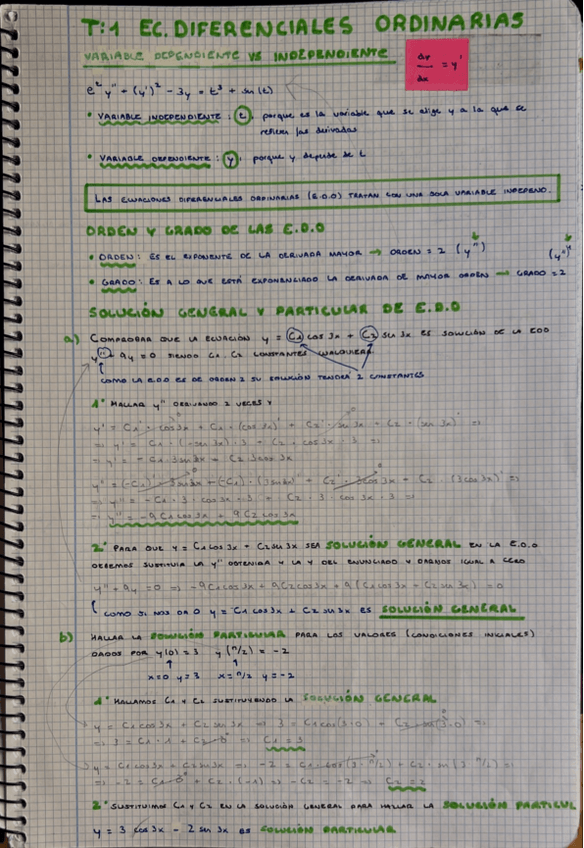 T:1 EC. DIFERENCIALES ORDINARIAS
VARIABLE DEPENDIENTE VS INDEPENDIENTE
dy/dx = y'
e² y'' + (y')² - 3y = t³ + sin(t)
• VARIABLE INDEPENDIENTE: t, porque es la variable que se elige y a la que se
refieren las derivadas
• VARIABLE DEPENDIENTE: y, porque y depende de t
LAS ECUACIONES DIFERENCIALES ORDINARIAS (E.D.O) TRATAN CON UNA SOLA VARIABLE INDEPEND.
ORDEN Y GRADO DE LAS E.D.O
• ORDEN: ES EL EXPONENTE DE LA DERIVADA MAYOR → ORDEN = 2 (y'')
• GRADO: ES A LO QUE ESTÁ EXPONENCIADO LA DERIVADA DE MAYOR ORDEN → GRADO = 2
SOLUCIÓN GENERAL Y PARTICULAR DE E.D.O
a) COMPROBAR QUE LA ECUACIÓN y = C1 cos 3x + C2 sin 3x ES SOLUCIÓN DE LA EDO
y'' 9y = 0 SIENDO C1, C2 CONSTANTES CUALQUIERA
COMO LA E.D.O ES DE ORDEN 2 SU SOLUCIÓN TENDRÁ 2 CONSTANTES
1º HALLAR y'' DERIVANDO 2 VECES Y
y' = C1' · cos3x + C1 · (cos3x)' + C2' · sin3x + C2 · (sin 3x)' =>
=> y' = C1 · (-sin 3x) · 3 + C2 · cos3x · 3 =>
=> y' = -C1 3sin3x + C2 3cos3x
=> y'' = -9C1cos3x + 9C2cos3x
2º PARA QUE Y = C1cos 3x + C2sin 3x SEA SOLUCIÓN GENERAL EN LA E.D.O
DEBEMOS SUSTITUIR LA y'' OBTENIDA Y LA Y DEL ENUNCIADO Y DARNOS IGUAL A CERO
y'' + 9y = 0 => -9C1cos3x + 9C2cos3x + 9(C1cos3x + C2sin3x) = 0
COMO SI NOS DA 0 y = C1 cos3x + C2 sin3x ES SOLUCIÓN GENERAL
b) HALLAR LA SOLUCIÓN PARTICULAR PARA LOS VALORES (CONDICIONES INICIALES)
DADOS POR y(0) = 3 y(π/2) = -2
x=0 y=3 x=π/2 y=-2
1º HALLAMOS C1 Y C2 SUSTITUYENDO LA SOLUCIÓN GENERAL
y = C1 cos3x + C2 sin 3x => 3 = C1cos(3·0) + C2 sin(3·0) =>
=> 3 = C1 · 1 + C2·0 => C1 = 3
y = C1 cos3x + C2sin3x => -2 = C1 · cos(3 π/2) + C2 · sin(3 π/2) =>
=> -2 = C1·0 + C2 · (-1) => -C2 = -2 => C2 = 2
2º SUSTITUIMOS C1 Y C2 EN LA SOLUCIÓN GENERAL PARA HALLAR LA SOLUCIÓN PARTICUL
y = 3 cos 3x - 2 sin 3x ES SOLUCIÓN PARTICULAR